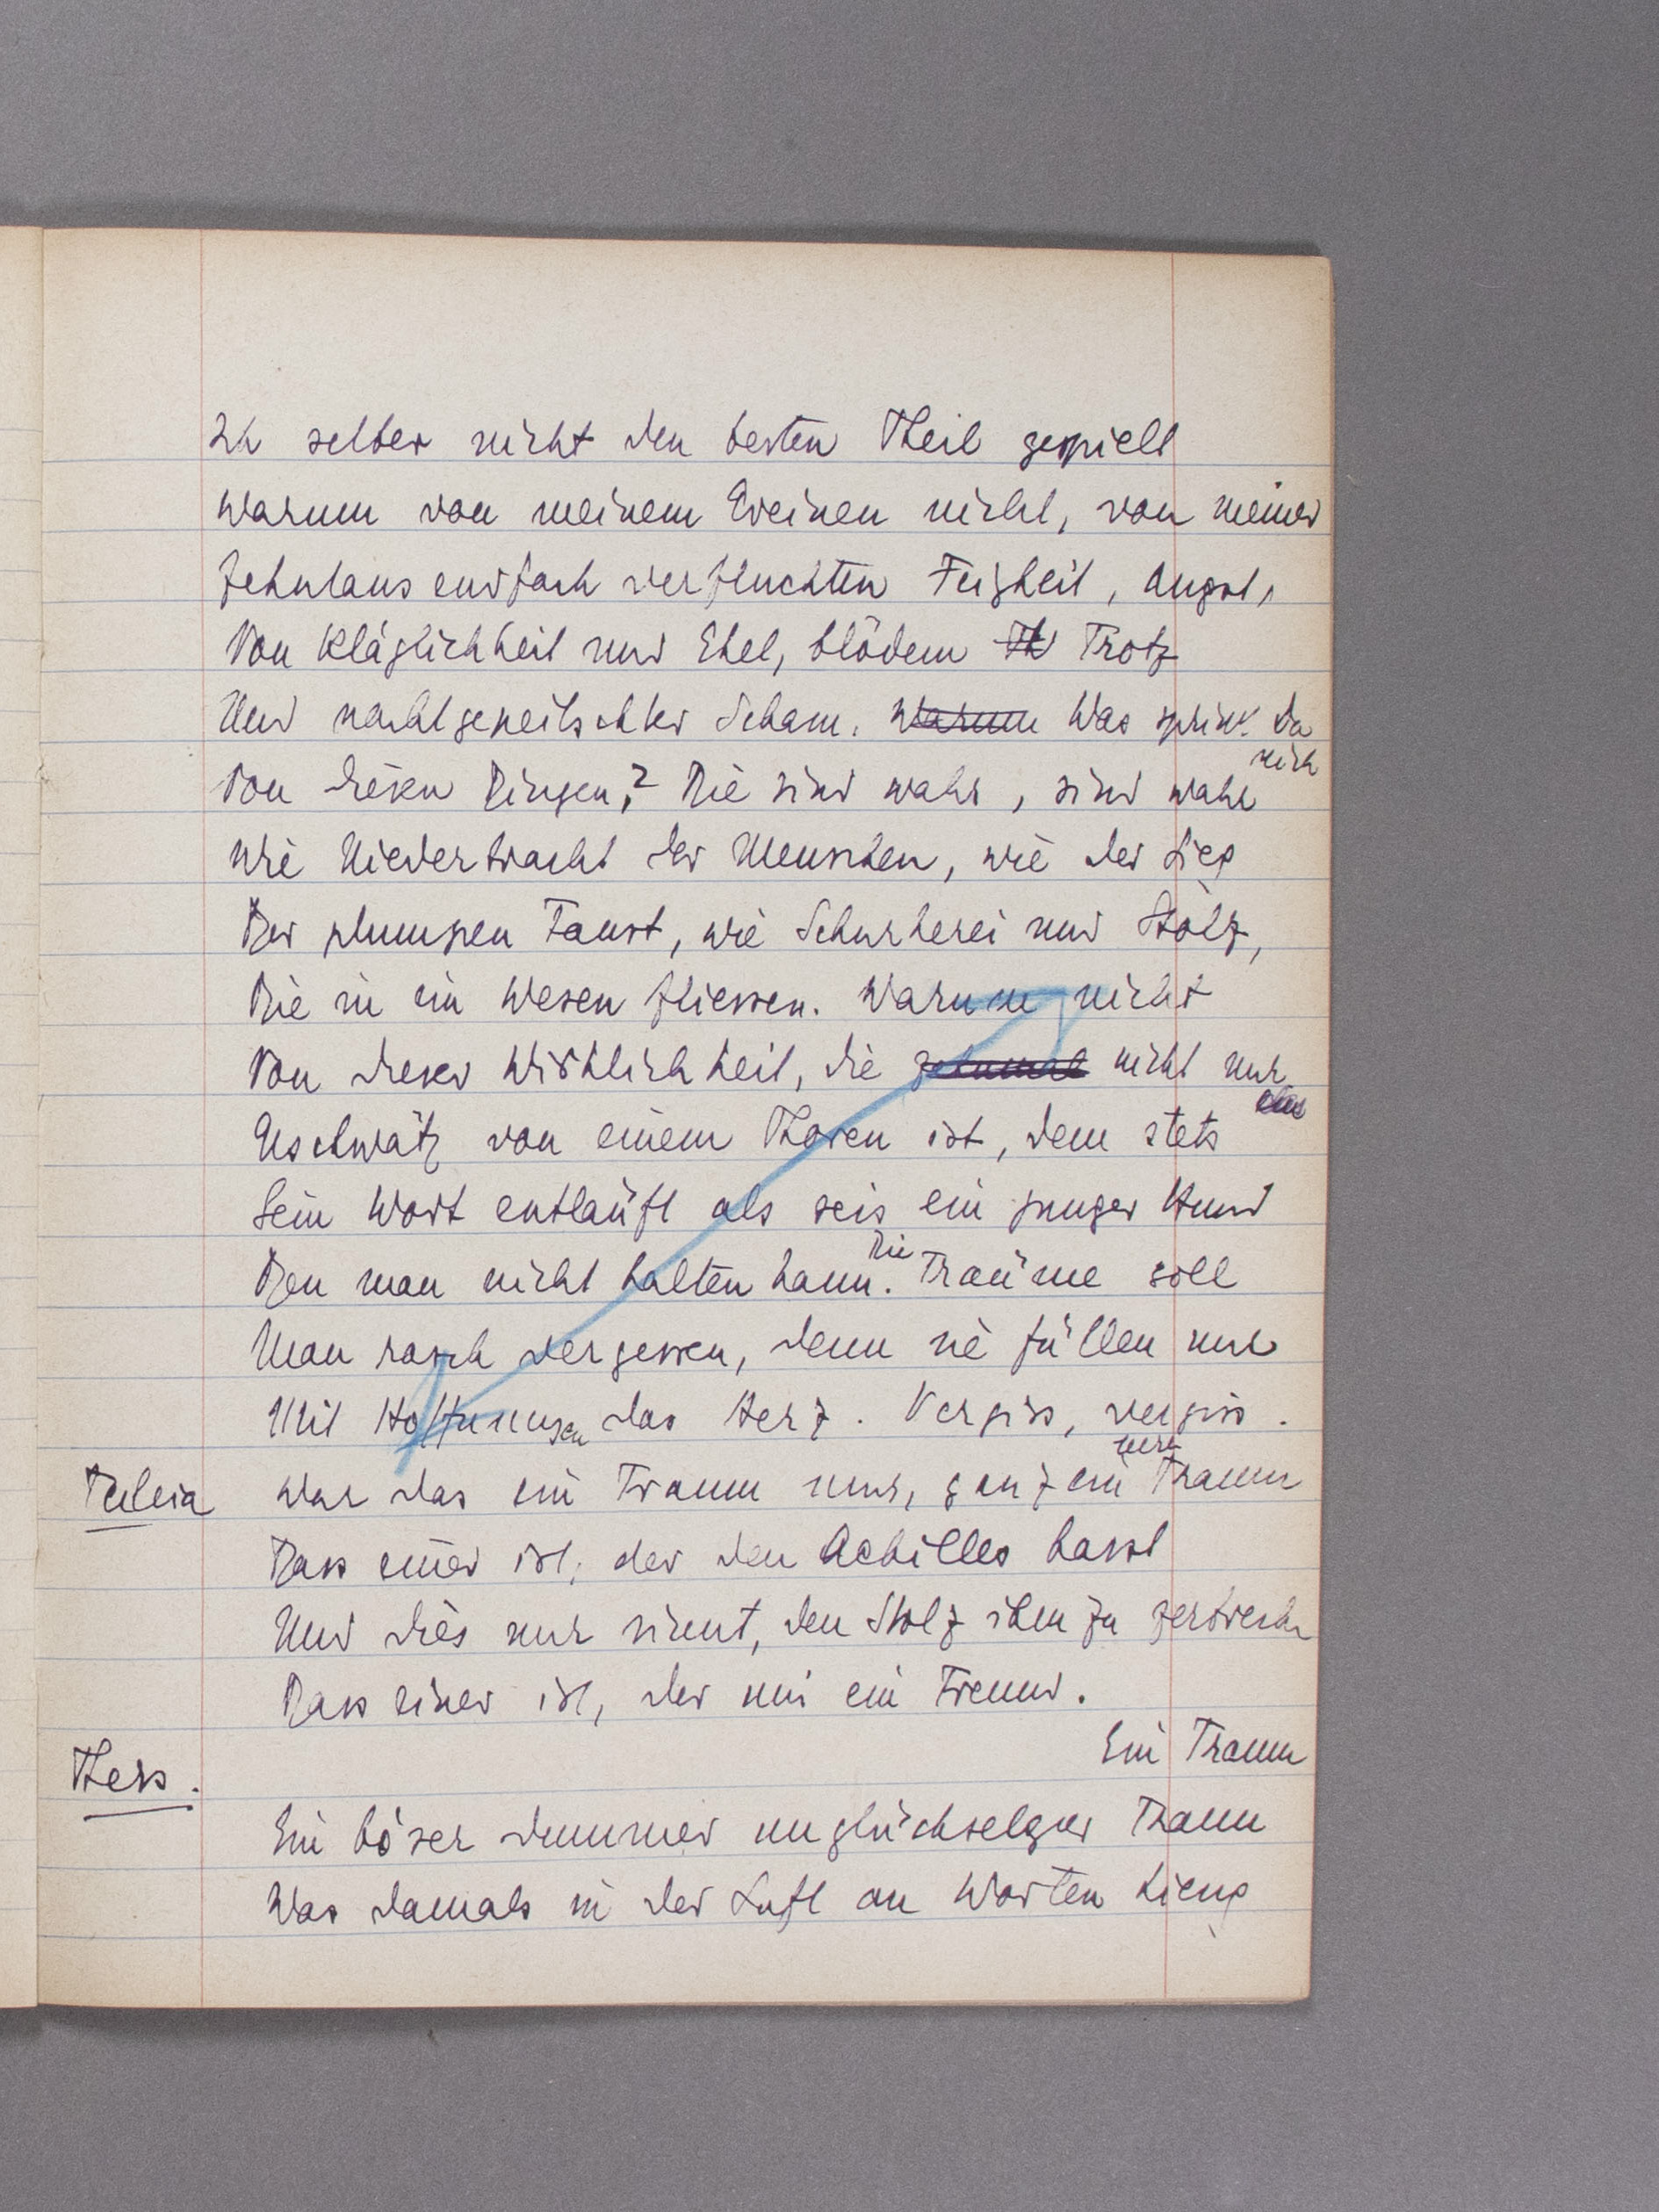 Ich selber nicht den besten Theil gespielt
Warum von meinem Weinen nicht, von meiner
Zehntausendfach verfluchten Feigheit, Angst,
Von Kläglichkeit und Ekel, blödem Th Trotz
Und nachtgepeitschter Scham. Warum Was sprichst Du
nich
Von diesen Dingen? Die sind wahr, sind wahr
Wie Niedertracht der Menschen, wie der Sieg
Der plumpen Faust, wie Schurkerei und Stolz,
Die in ein Wesen fliessen. Warum nicht
Von dieser Wirklichkeit, die zehnmal nicht nur
Geschwätz von einem Thoren ist, dem stets
Sein Wort entläuft als seis ein junger Hund
Den man nicht halten kann. Die Träume soll
Man rasch vergessen, denn sie füllen nur
Mit Hoffnungen das Herz. Vergiss, vergiss.
Teleia War das ein Traum nur, ganz ein Traum
nur
Dass einer ist, der den Achilles hasst
Und dies nur sinnt, den Stolz ihm zu zerbrechen
Dass einer ist, der mir ein Freund.
Thers. Ein Traum
Ein böser dummer unglückselger Traum
Was damals in der Luft an Worten hieng